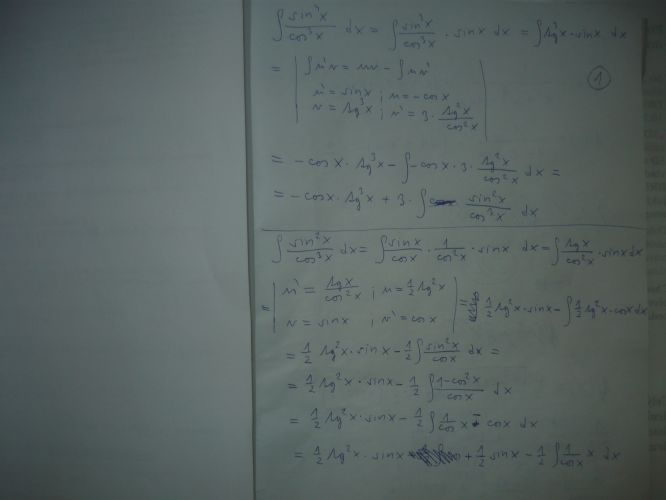 ∫ sin⁴x/cos³x dx = ∫ sin³x/cos³x · sin x dx = ∫ tg³x · sin x dx
= | ∫ u'v = uv - ∫ uv'
①
u' = sin x ; u = -cos x
v = tg³x ; v' = 3 · tg²x/cos²x |
= -cos x · tg³x - ∫ -cos x · 3 · tg²x/cos²x dx =
= -cos x · tg³x + 3 · ∫ sin²x/cos³x dx
∫ sin²x/cos³x dx = ∫ sin x/cos x · 1/cos²x · sin x dx = ∫ tg x/cos²x · sin x dx
= | u' = tg x/cos²x ; u = 1/2 tg²x
v = sin x ; v' = cos x | = 1/2 tg²x · sin x - ∫ 1/2 tg²x · cos x dx
= 1/2 tg²x · sin x - 1/2 ∫ sin²x/cos x dx =
= 1/2 tg²x · sin x - 1/2 ∫ 1-cos²x/cos x dx
= 1/2 tg²x · sin x - 1/2 ∫ 1/cos x - cos x dx
= 1/2 tg²x · sin x + 1/2 sin x - 1/2 ∫ 1/cos x x dx